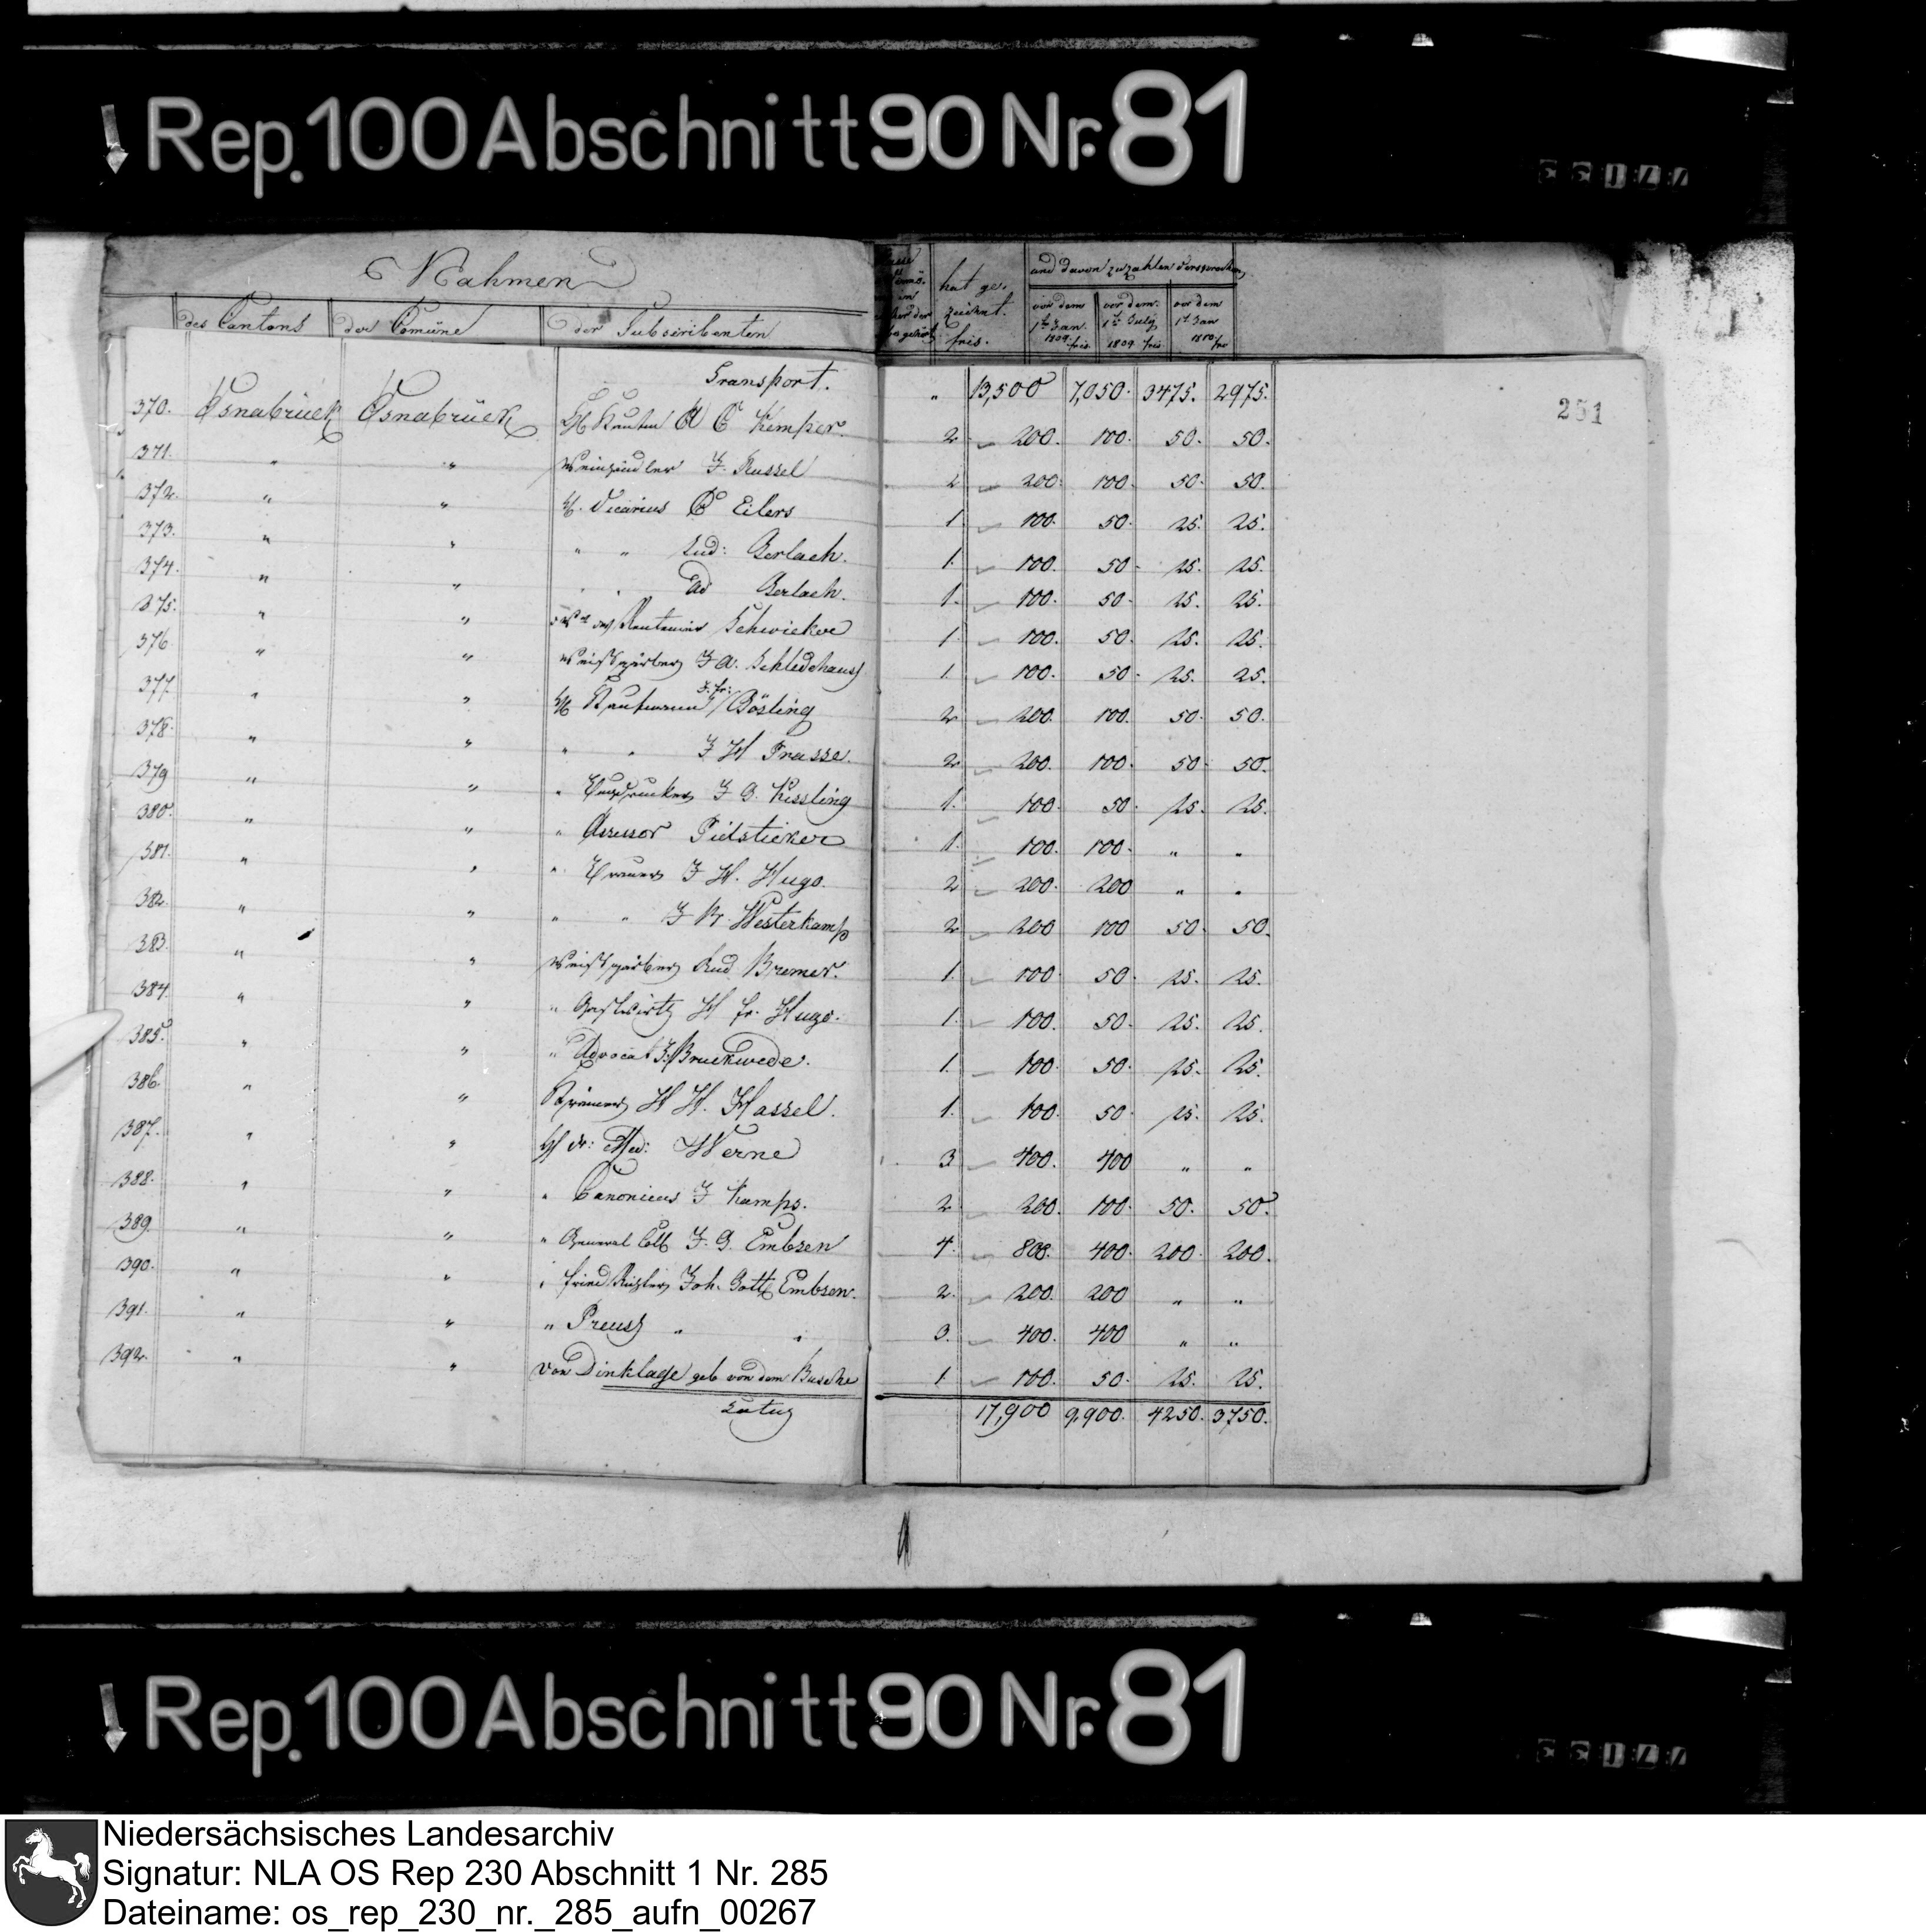 Rep. 100 Abschnitt 90 Nr. 81
Nahmen
des Cantons der Comüne der Subscribenten
hat gezeichnet. frcs.
und davon zu zahlen versprochen
vor dem 1ten Jan. 1809 frcs.
vor dem 1ten July 1809 frcs
vor dem 1t Jan 1810 frc
251
Transport. " 13,500 7,050. 3475. 2975.
370. Osnabrück Osnabrück H. Kaufm A C Kemper. 2 200. 100. 50. 50.
371. " " Weinhändler J. Russel 2 200. 100. 50. 50.
372. " " H. Vicarius C Eilers 1 100. 50. 25. 25.
373. " " " " Lud: Gerlach. 1. 100. 50. 25. 25.
374. " " " " Ad Gerlach. 1. 100. 50. 25. 25.
375. " " Schwicker 1. 100. 50. 25. 25.
376 " " Weißgärber J A. Schledehaus 1. 100. 50. 25. 25.
377. " " H Kaufmann J. fr: Bösling 2 200. 100. 50. 50.
378. " " " " J H Frasse. 2 200. 100. 50. 50.
379 " " " Buchdrucker J G. Kissling 1. 100. 50. 25. 25.
380. " " " Assessor Pielsticker 1. 100. 100. " "
381. " " " J H. Hugo. 2 200. 200 " "
382. " " " " J Westerkamp 2 200 100 50. 50.
383. " " Weißgärber Rud. Bremer. 1. 100 50. 25. 25.
384. " " " Gastwirth H fr. Hugo. 1. 100. 50. 25. 25.
385. " " " Advocat J. Bruckwede. 1. 100. 50. 25. 25.
386. " " Krämer H H. Hassel. 1. 100. 50. 25. 25.
387. " " H dr: Med: Werne 3 400. 400 " "
388. " " " Canonicus J Kamps. 2 200. 100. 50. 50.
389. " " " General J. G. Embsen 4. 800. 400. 200. 200.
390. " " " Joh. Gottf Embsen. 2. 200. 200 " "
391. " " " Preuss " " 3. 400. 400 " "
392. " " von Dinklage geb von dem Busche 1. 100. 50. 25. 25.
Latus 17,900 9,900. 4250. 3750.
Rep. 100 Abschnitt 90 Nr. 81
Niedersächsisches Landesarchiv
Signatur: NLA OS Rep 230 Abschnitt 1 Nr. 285
Dateiname: os_rep_230_nr._285_aufn_00267